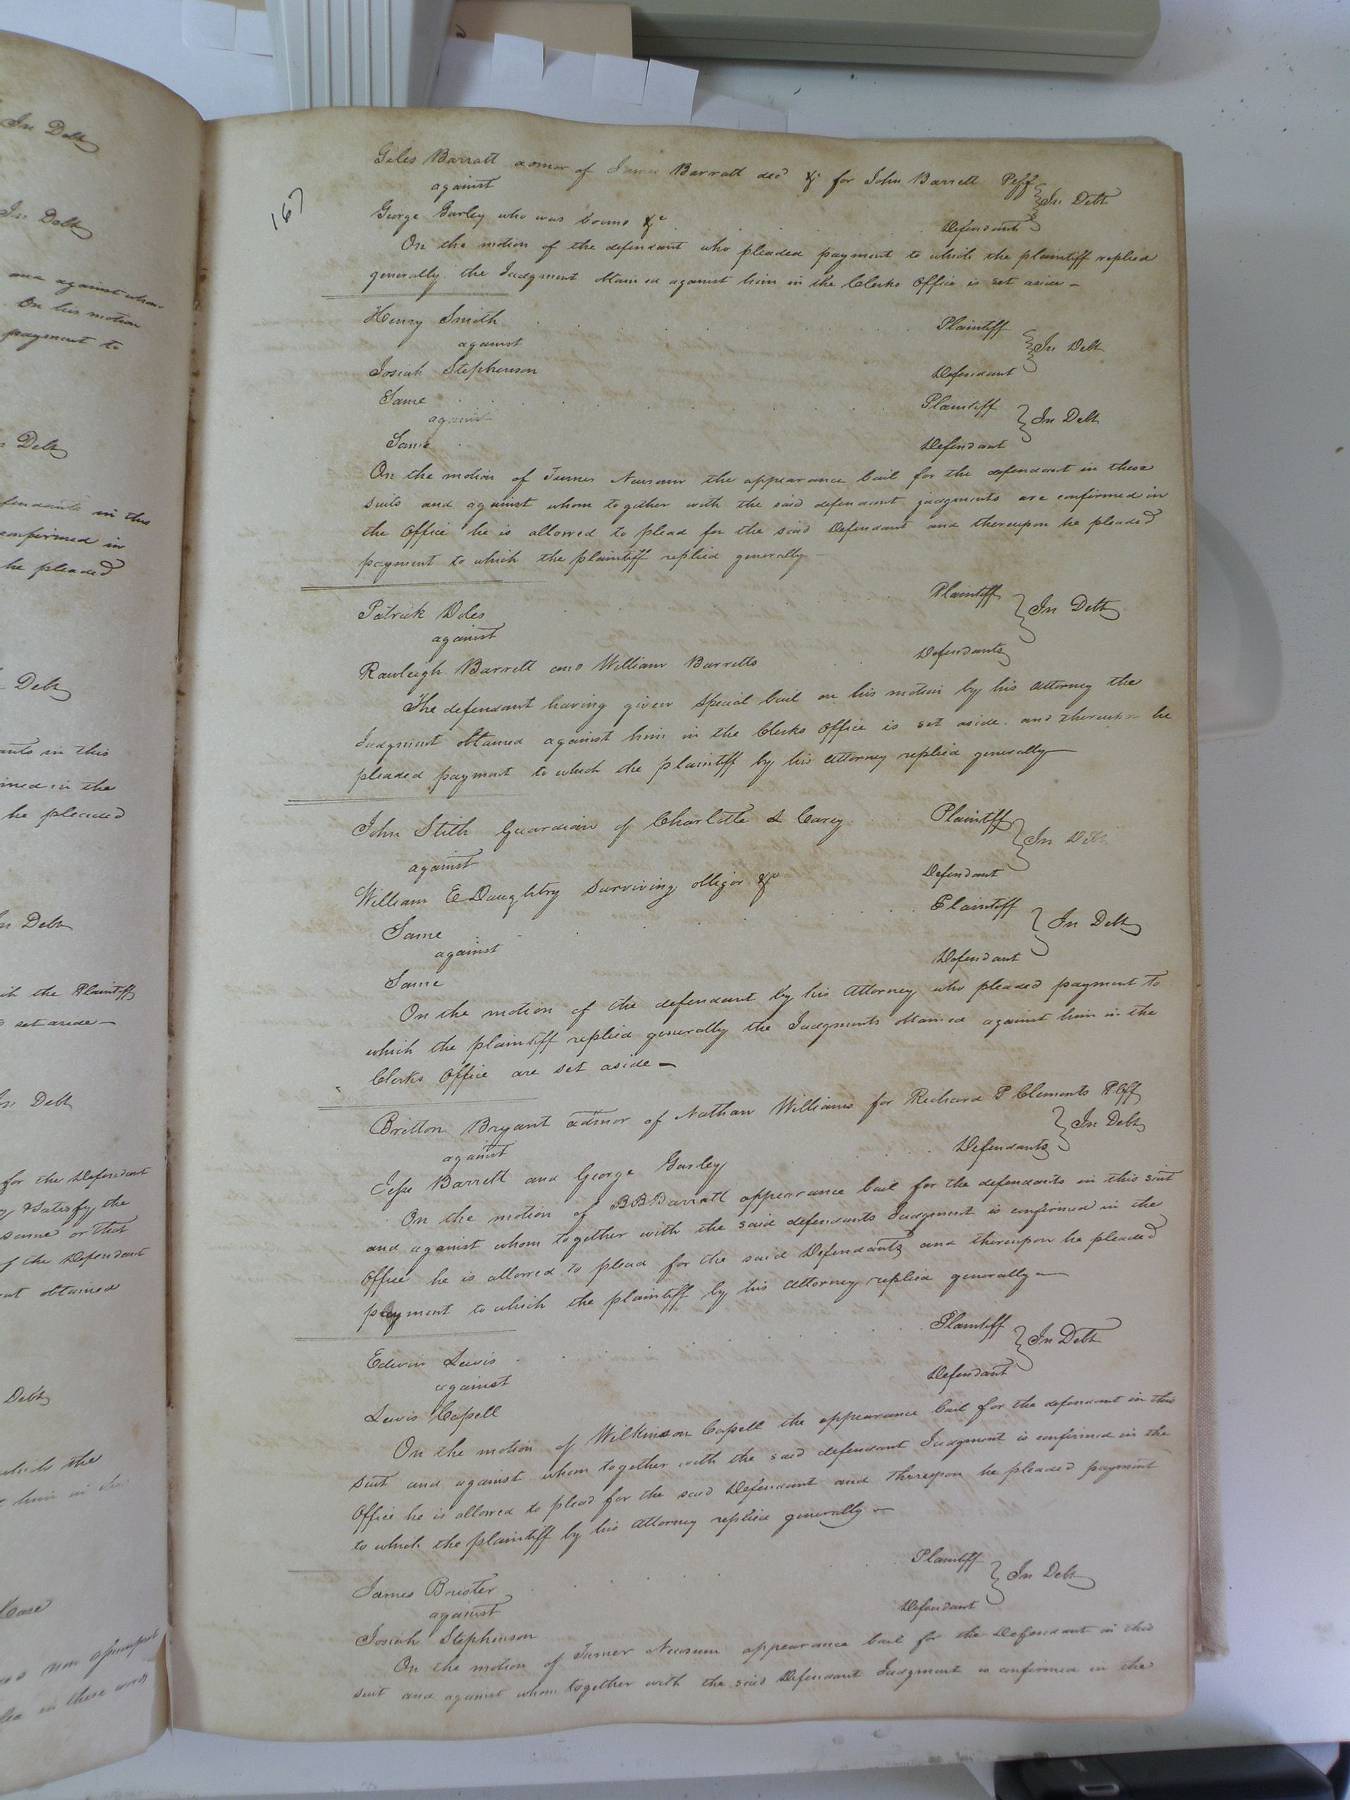 In Debt
In Debt
and against whom
On his motion
payment to
Debt
fendants in this
confirmed in
he pleaded
Debt
ants in this
in the
he pleaded
In Debt
the Plaintiff
set aside
In Debt
for the Defendant
Satisfy the
same or that
of the Defendant
obtained
Debt
which the
him in
Case
non assumpsit
in these words
167
Giles Barratt admor of James Barratt decd &c for John Barrett Peff
against
In Debt
George Gurley who was bound &c
Defendant
On the motion of the defendant who pleaded payment to which the plaintiff replied
generally the Judgment obtained against him in the Clerks Office is set aside
Henry Smith
Plaintiff
against
In Debt
Josiah Stephenson
Defendant
Same
Plaintiff
against
In Debt
Same
Defendant
On the motion of Turner Newsum the appearance bail for the defendant in these
suits and against whom together with the said defendant judgments are confirmed in
the Office he is allowed to plead for the said Defendant and thereupon he pleaded
payment to which the plaintiff replied generally
Patrick Doles
Plaintiff
against
In Debt
Rawleigh Barrett and William Barretts
Defendants
The defendant having given Special bail on his motion by his attorney the
Judgment obtained against him in the Clerks Office is set aside and thereupon he
pleaded payment to which the plaintiff by his attorney replied generally
John Stith Guardian of Charlotte L Carey
Plaintiff
against
In Debt
William E Daughtry surviving obligor &c
Defendant
Same
Plaintiff
against
In Debt
Same
Defendant
On the motion of the defendant by his Attorney who pleaded payment to
which the plaintiff replied generally the Judgments obtained against him in the
Clerks Office are set aside
Britton Bryant admor of Nathan Williams for Richard P Clements Peff
against
In Debt
Jesse Barrett and George Gurley
Defendants
On the motion of B B Barratt appearance bail for the defendants in this suit
and against whom together with the said defendants Judgment is confirmed in the
Office he is allowed to plead for the said Defendants and thereupon he pleaded
payment to which the plaintiff by his attorney replied generally
Edwin Lewis
Plaintiff
against
In Debt
Lewis Capell
Defendant
On the motion of Wilkinson Capell the appearance bail for the defendant in this
suit and against whom together with the said defendant Judgment is confirmed in the
Office he is allowed to plead for the said Defendant and thereupon he pleaded payment
to which the plaintiff by his attorney replied generally
James Brister
Plaintiff
against
In Debt
Josiah Stephenson
Defendant
On the motion of Turner Newsum appearance bail for the Defendant in this
suit and against whom together with the said Defendant Judgment is confirmed in the